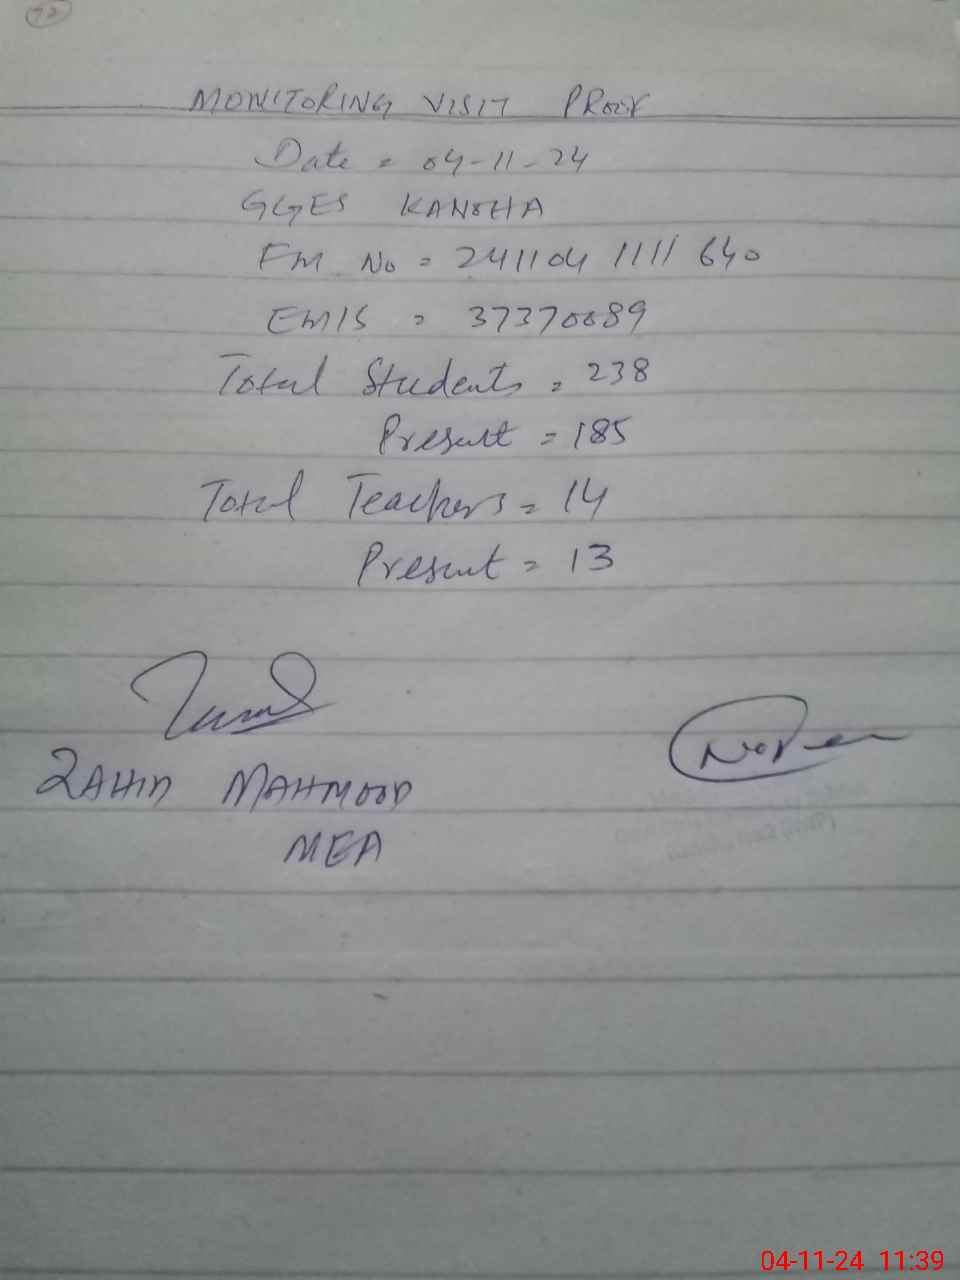 MONITORING VISIT PROOF
Date = 04-11-24
GGES KANSHA
FM No = 241104 1111 640
EMIS = 37370089
Total Students = 238
Present = 185
Total Teachers = 14
Present = 13
ZAHID MAHMOOD
MEA
04-11-24 11:39